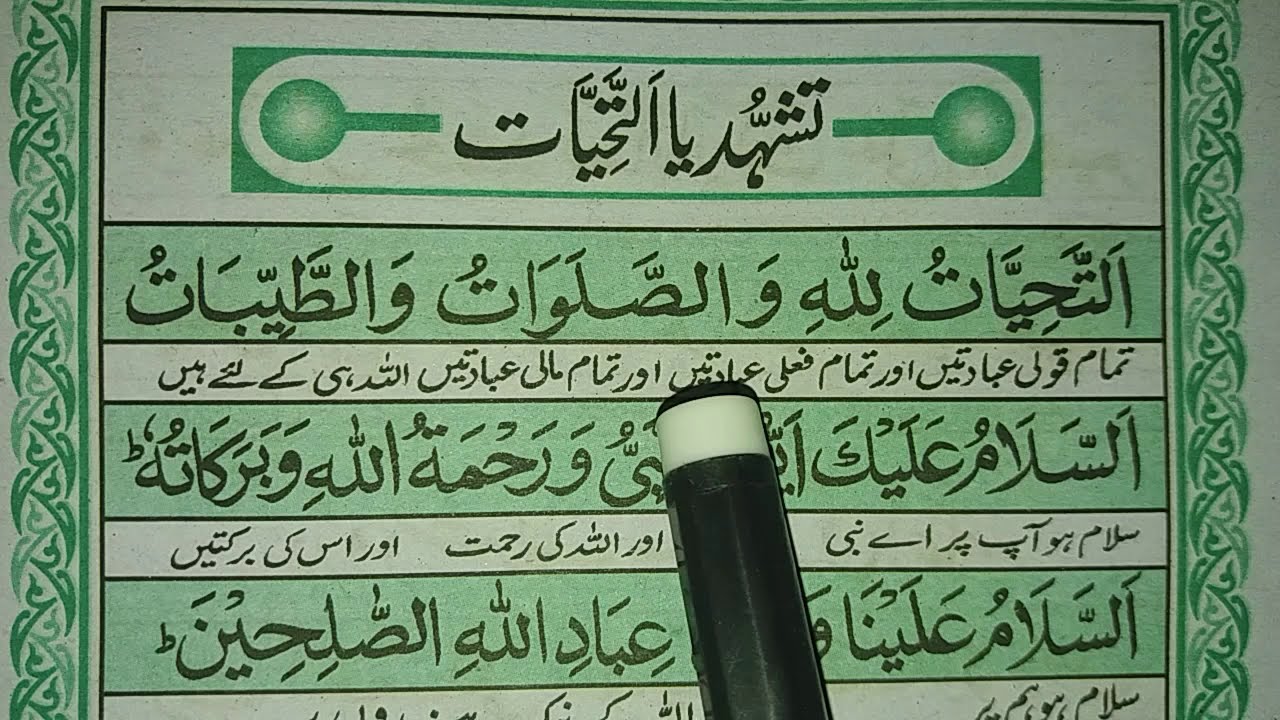 تشہّد یا اَلتَّحِیَّات
اَلتَّحِيَّاتُ لِلّٰهِ وَ الصَّلَوَاتُ وَالطَّيِّبَاتُ
تمام قولی عبادتیں اور تمام فعلی عبادتیں اور تمام مالی عبادتیں اللہ ہی کے لئے ہیں
اَلسَّلَامُ عَلَيْكَ وَرَحْمَةُ اللّٰهِ وَبَرَكَاتُهٗ ؕ
سلام ہو آپ پر اے نبی اور اللہ کی رحمت اور اس کی برکتیں
اَلسَّلَامُ عَلَيْنَا عِبَادِ اللّٰهِ الصّٰلِحِيْنَ ؕ
سلام ہو ہم پر